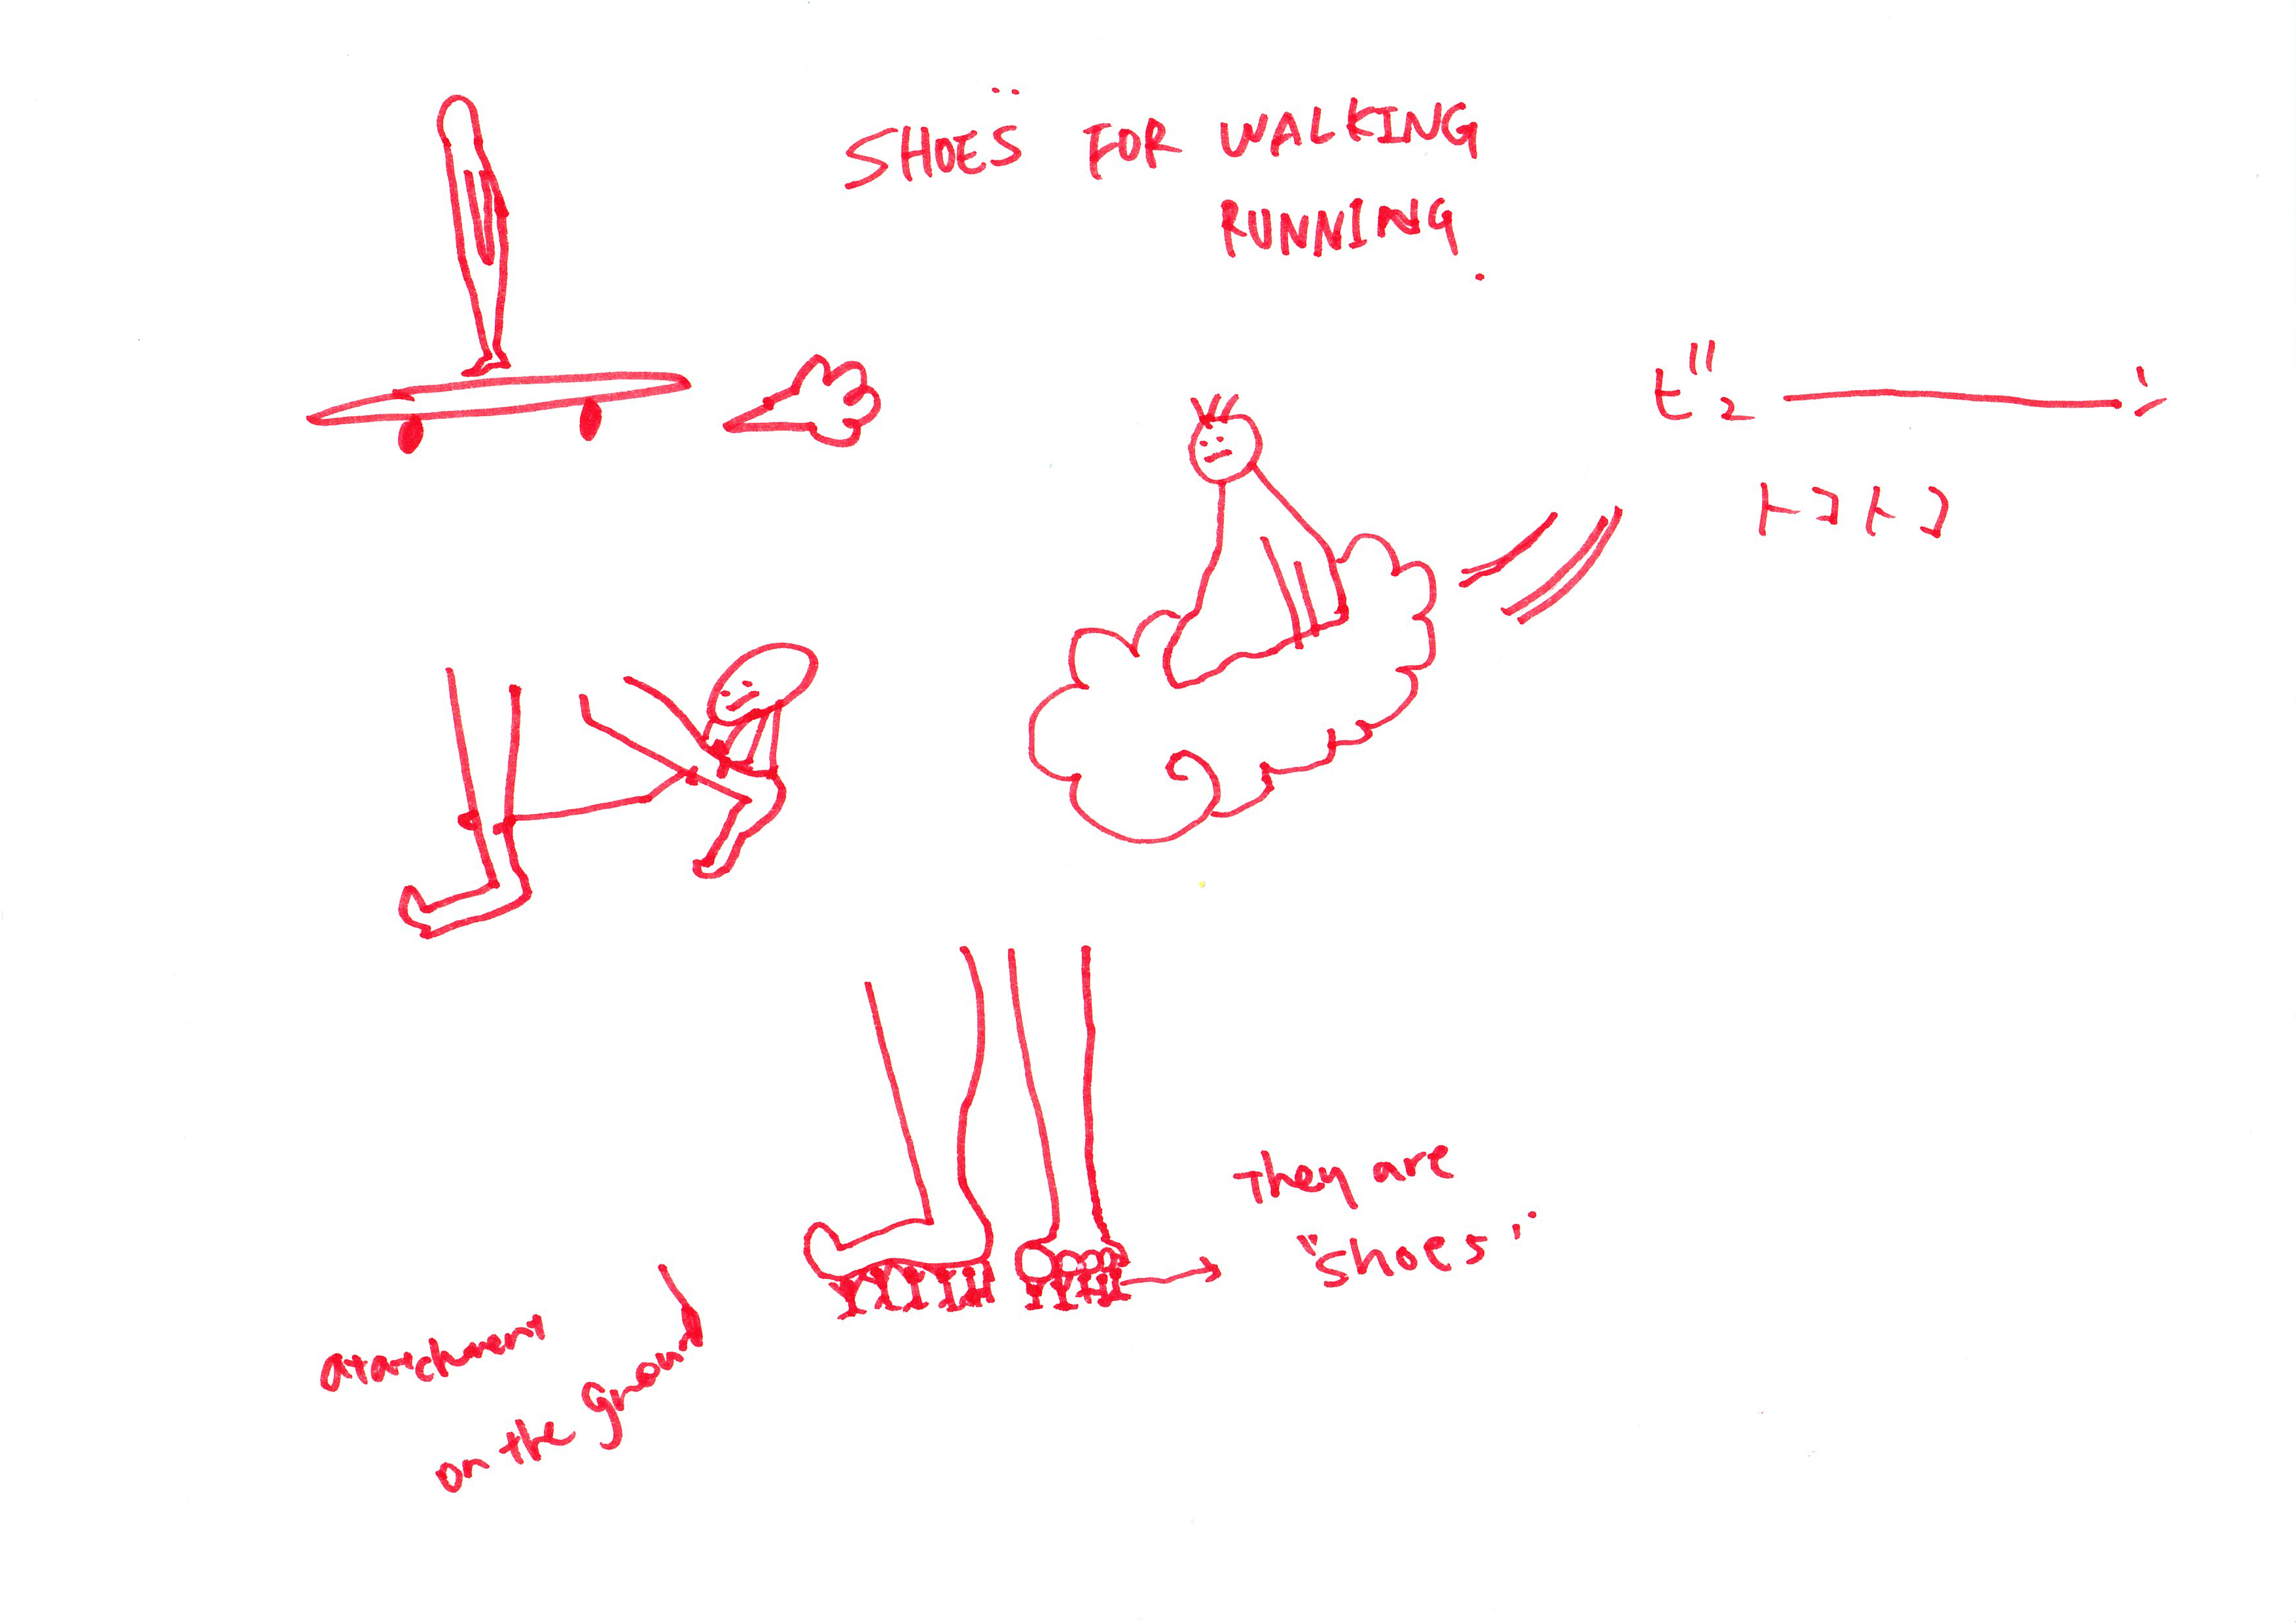 SHOES FOR WALKING
RUNNING.
ビュ―ン
トコトコ
They are
"shoes".
attachment
on the ground